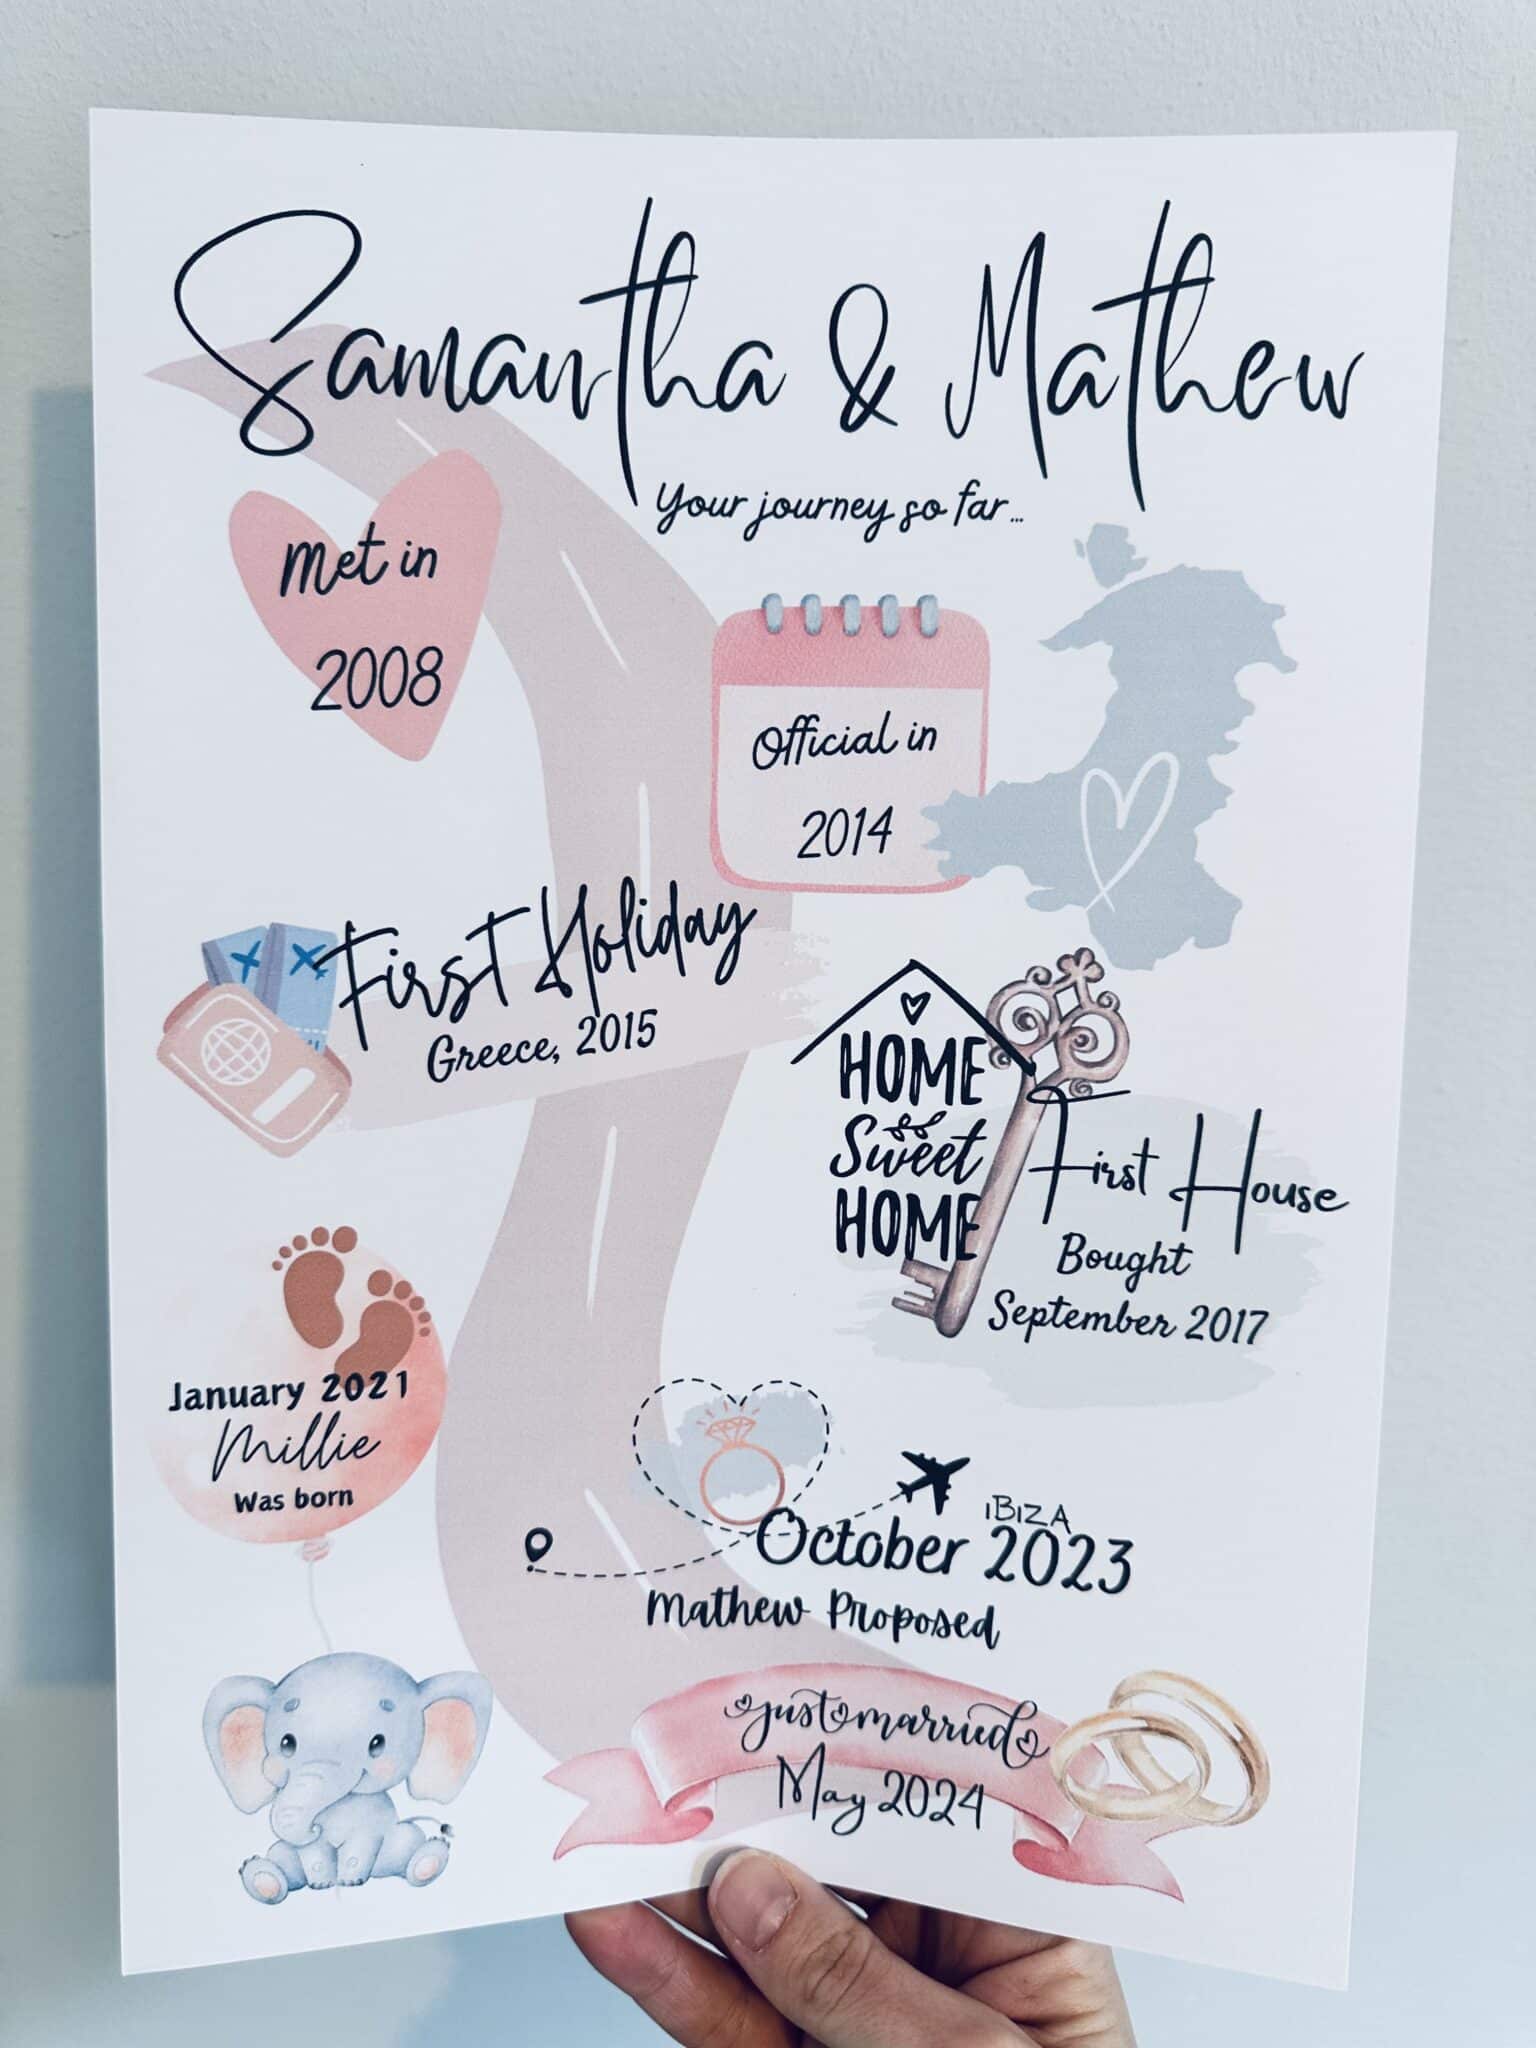 Samantha & Mathew
Your journey so far...
Met in
2008
Official in
2014
First Holiday
Greece, 2015
HOME
Sweet
HOME
First House
Bought
September 2017
January 2021
Millie
Was born
IBIZA
October 2023
Mathew Proposed
just married
May 2024